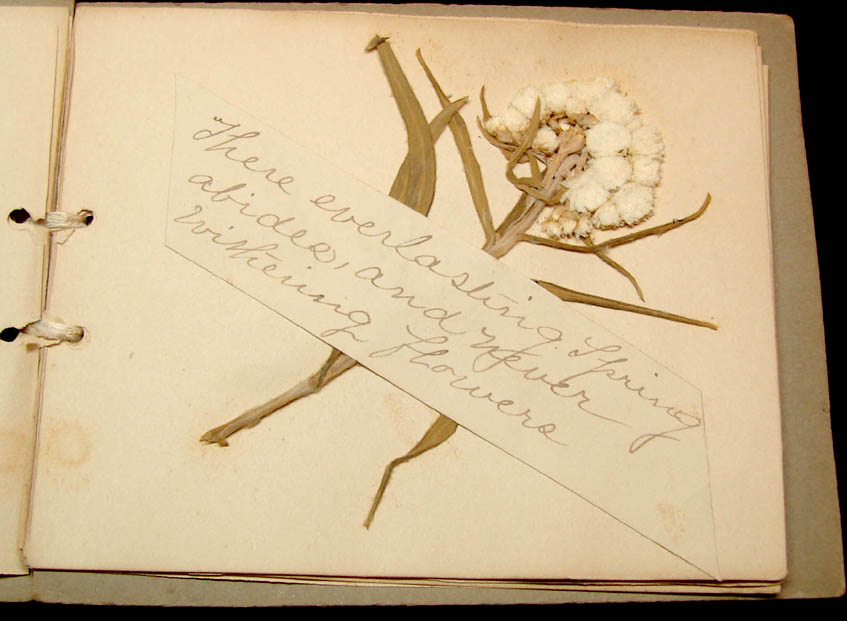 There everlasting Spring
abides, and never
Withering flowers